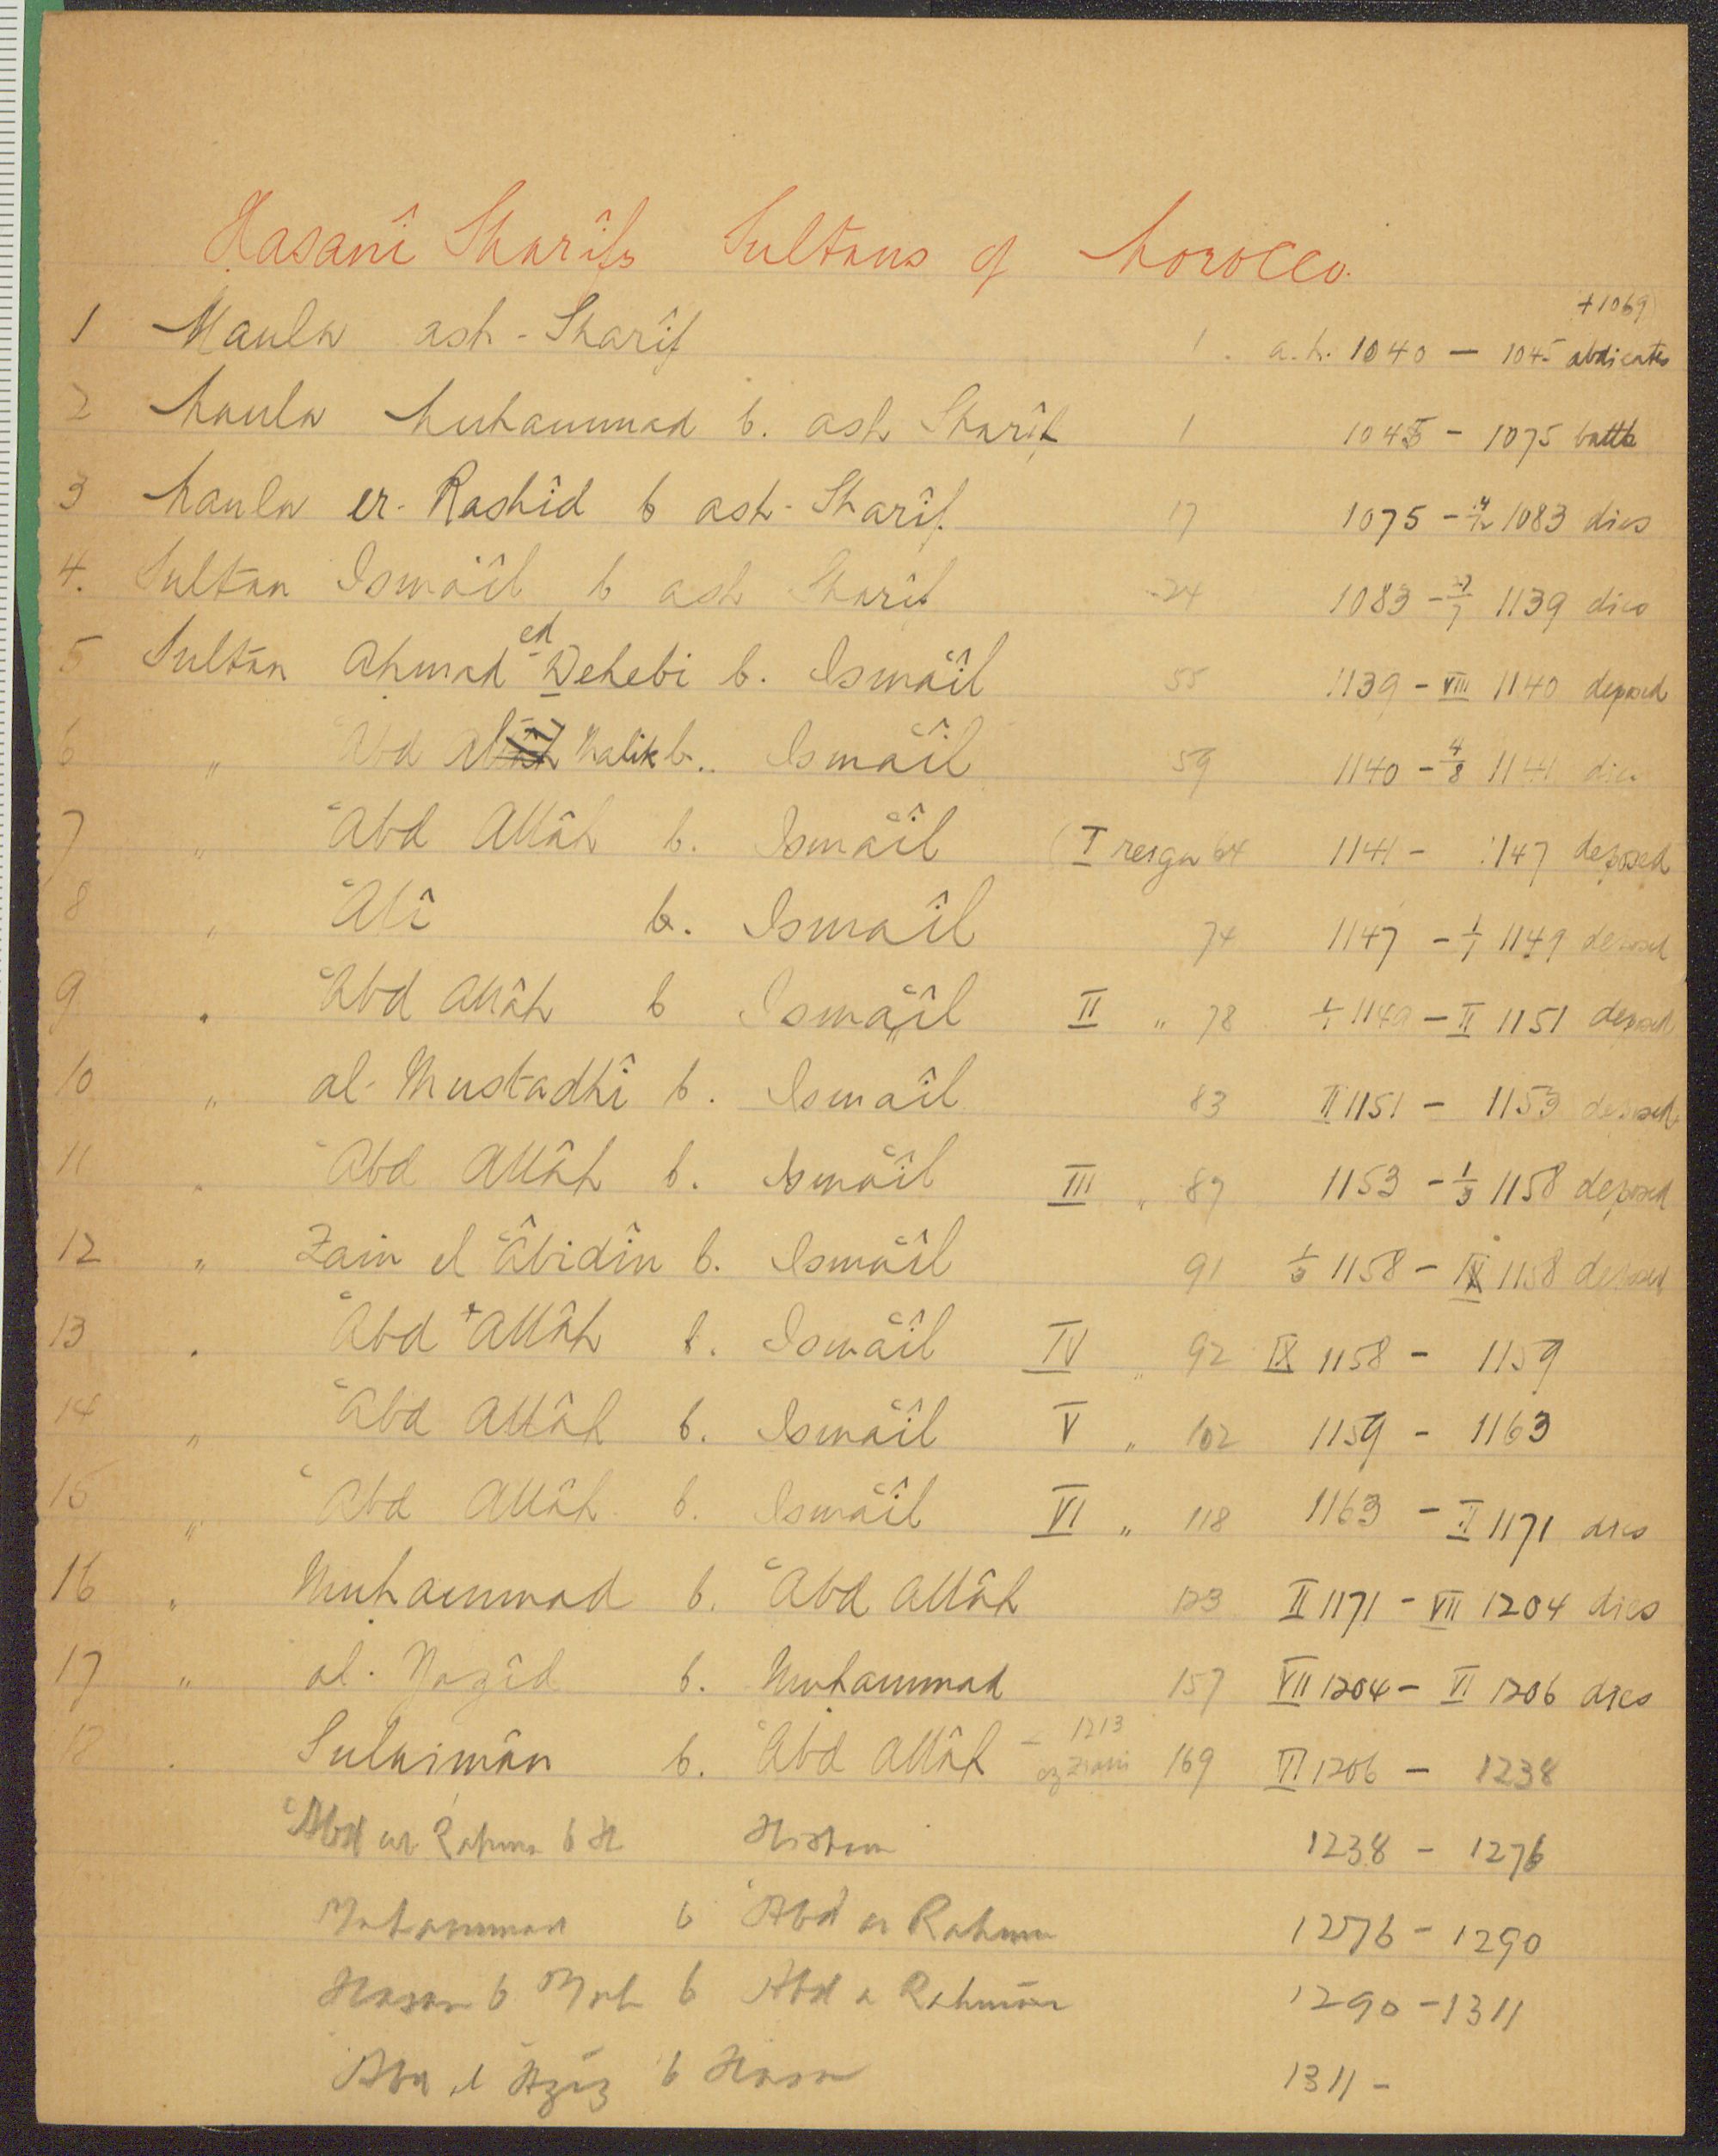 Hasanî Sharîfs Sultans of Morocco.
+1069
1 Maula ash-Sharîf 1. a.h. 1040 — 1045 abdicates
2 Maula Muhammad b. ash Sharîf 1 1045 - 1075 battle
3 Maula er-Rashîd b ash-Sharîf. 17 1075 - 1083 dies
4. Sultan Ismâʿîl b ash Sharîf 24 1083 - 27/7 1139 dies
5 Sultan Ahmad ed Dehebi b. Ismâʿîl 55 1139 - VIII 1140 deposed
6 " ʿAbd al Malik b. Ismâʿîl 59 1140 - 4/8 1141 dies
7 " ʿAbd Allâh b. Ismâʿîl (I reign 64 1141 - 1147 deposed
8 " ʿAlî b. Ismaîl 74 1147 - 1/1 1149 deposed
9 " ʿAbd Allâh b Ismâʿîl II " 78 1/1 1149 - II 1151 deposed
10 " al-Mustadhî b. Ismaîl 83 II 1151 - 1153 deposed
11 " ʿAbd Allâh b. Ismâʿîl III " 87 1153 - 1/3 1158 deposed
12 " Zain el ʿÂbidîn b. Ismâʿîl 91 1/3 1158 - IX 1158 deposed
13 " ʿAbd Allâh b. Ismâʿîl IV " 92 IX 1158 - 1159
14 " ʿAbd Allâh b. Ismâʿîl V " 102 1159 - 1163
15 " ʿAbd Allâh b. Ismâʿîl VI " 118 1163 - II 1171 dies
16 " Muhammad b. ʿAbd Allâh 123 II 1171 - VII 1204 dies
17 " al-Yazîd b. Muhammad 157 VII 1204 - VI 1206 dies
18 " Sulaimân b. ʿAbd Allâh - 1213 ez Ziani 169 VI 1206 - 1238
ʿAbd ar Rahman b H Hisham 1238 - 1276
Mohammad b ʿAbd ar Rahman 1276 - 1290
Hasan b Moh b Abd a Rahmān 1290 - 1311
Abd el Azīz b Hasan 1311 -